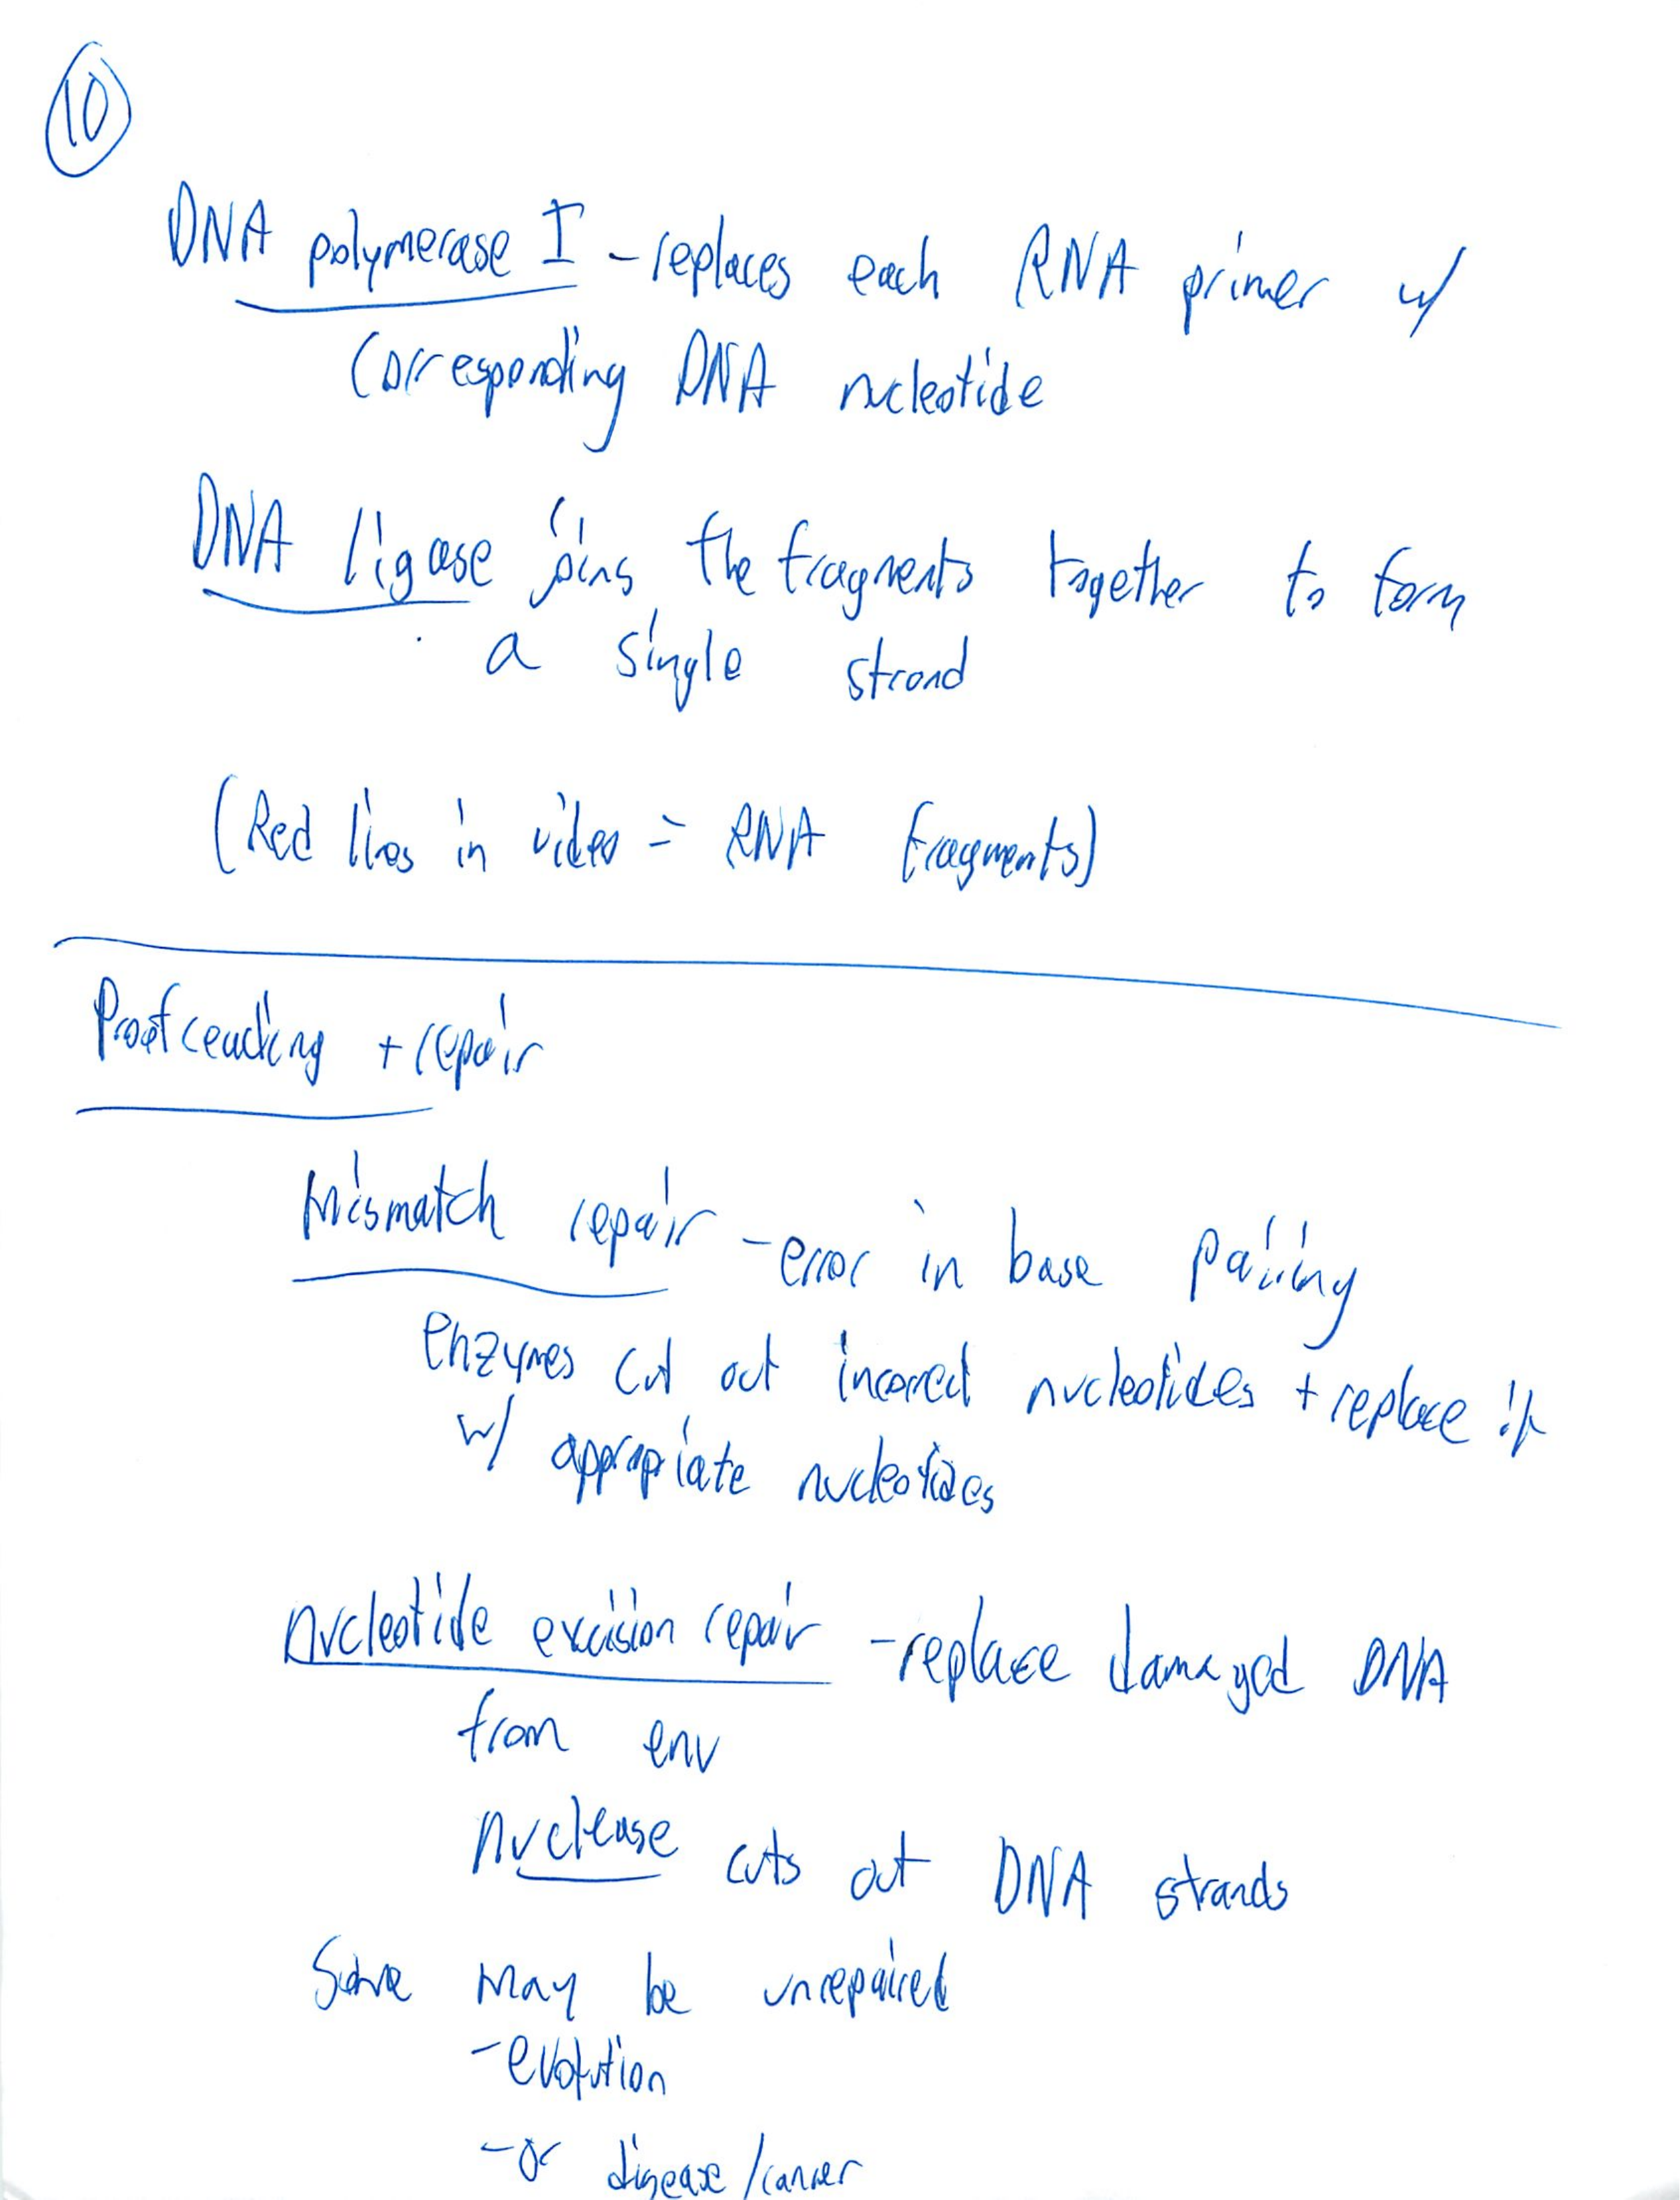 10
DNA polymerase I - replaces each RNA primer w/
corresponding DNA nucleotide
DNA ligase joins the fragments together to form
a single strand
(Red lines in video = RNA fragments)
Proofreading + repair
Mismatch repair - error in base pairing
enzymes cut out incorrect nucleotides + replace it
w/ appropriate nucleotides
nucleotide excision repair - replace damaged DNA
from env
nuclease cuts out DNA strands
Some may be unrepaired
- evolution
- or disease/cancer